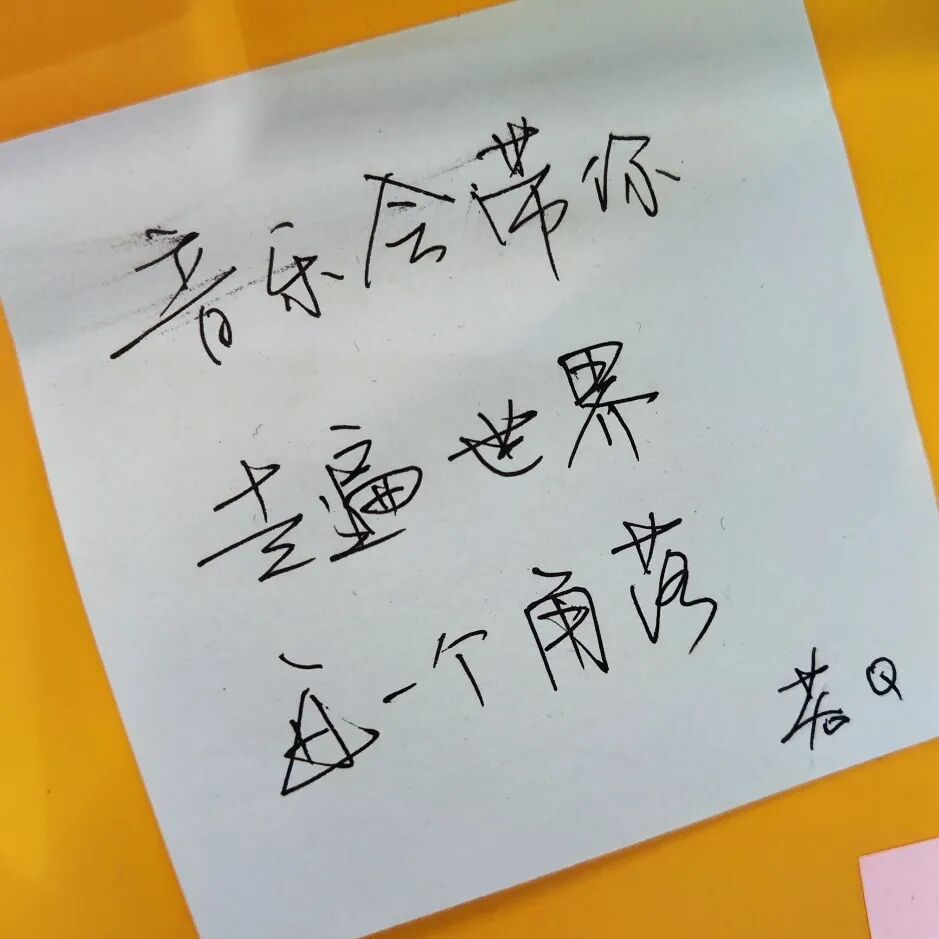 音乐会带你
去遍世界
每一个角落
若Q